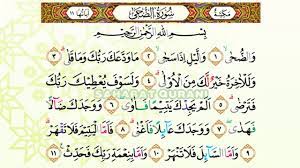 مَكِّيَّة سُورَةُ الضُّحَىٰ آيَاتُهَا ١١
بِسْمِ اللَّهِ الرَّحْمَٰنِ الرَّحِيمِ
وَالضُّحَىٰ ١ وَاللَّيْلِ إِذَا سَجَىٰ ٢ مَا وَدَّعَكَ رَبُّكَ وَمَا قَلَىٰ ٣
وَلَلْآخِرَةُ خَيْرٌ لَّكَ مِنَ الْأُولَىٰ ٤ وَلَسَوْفَ يُعْطِيكَ رَبُّكَ
فَتَرْضَىٰ ٥ أَلَمْ يَجِدْكَ يَتِيمًا فَآوَىٰ ٦ وَوَجَدَكَ ضَالًّا
فَهَدَىٰ ٧ وَوَجَدَكَ عَائِلًا فَأَغْنَىٰ ٨ فَأَمَّا الْيَتِيمَ فَلَا تَقْهَرْ
٩ وَأَمَّا السَّائِلَ فَلَا تَنْهَرْ ١٠ وَأَمَّا بِنِعْمَةِ رَبِّكَ فَحَدِّثْ ١١